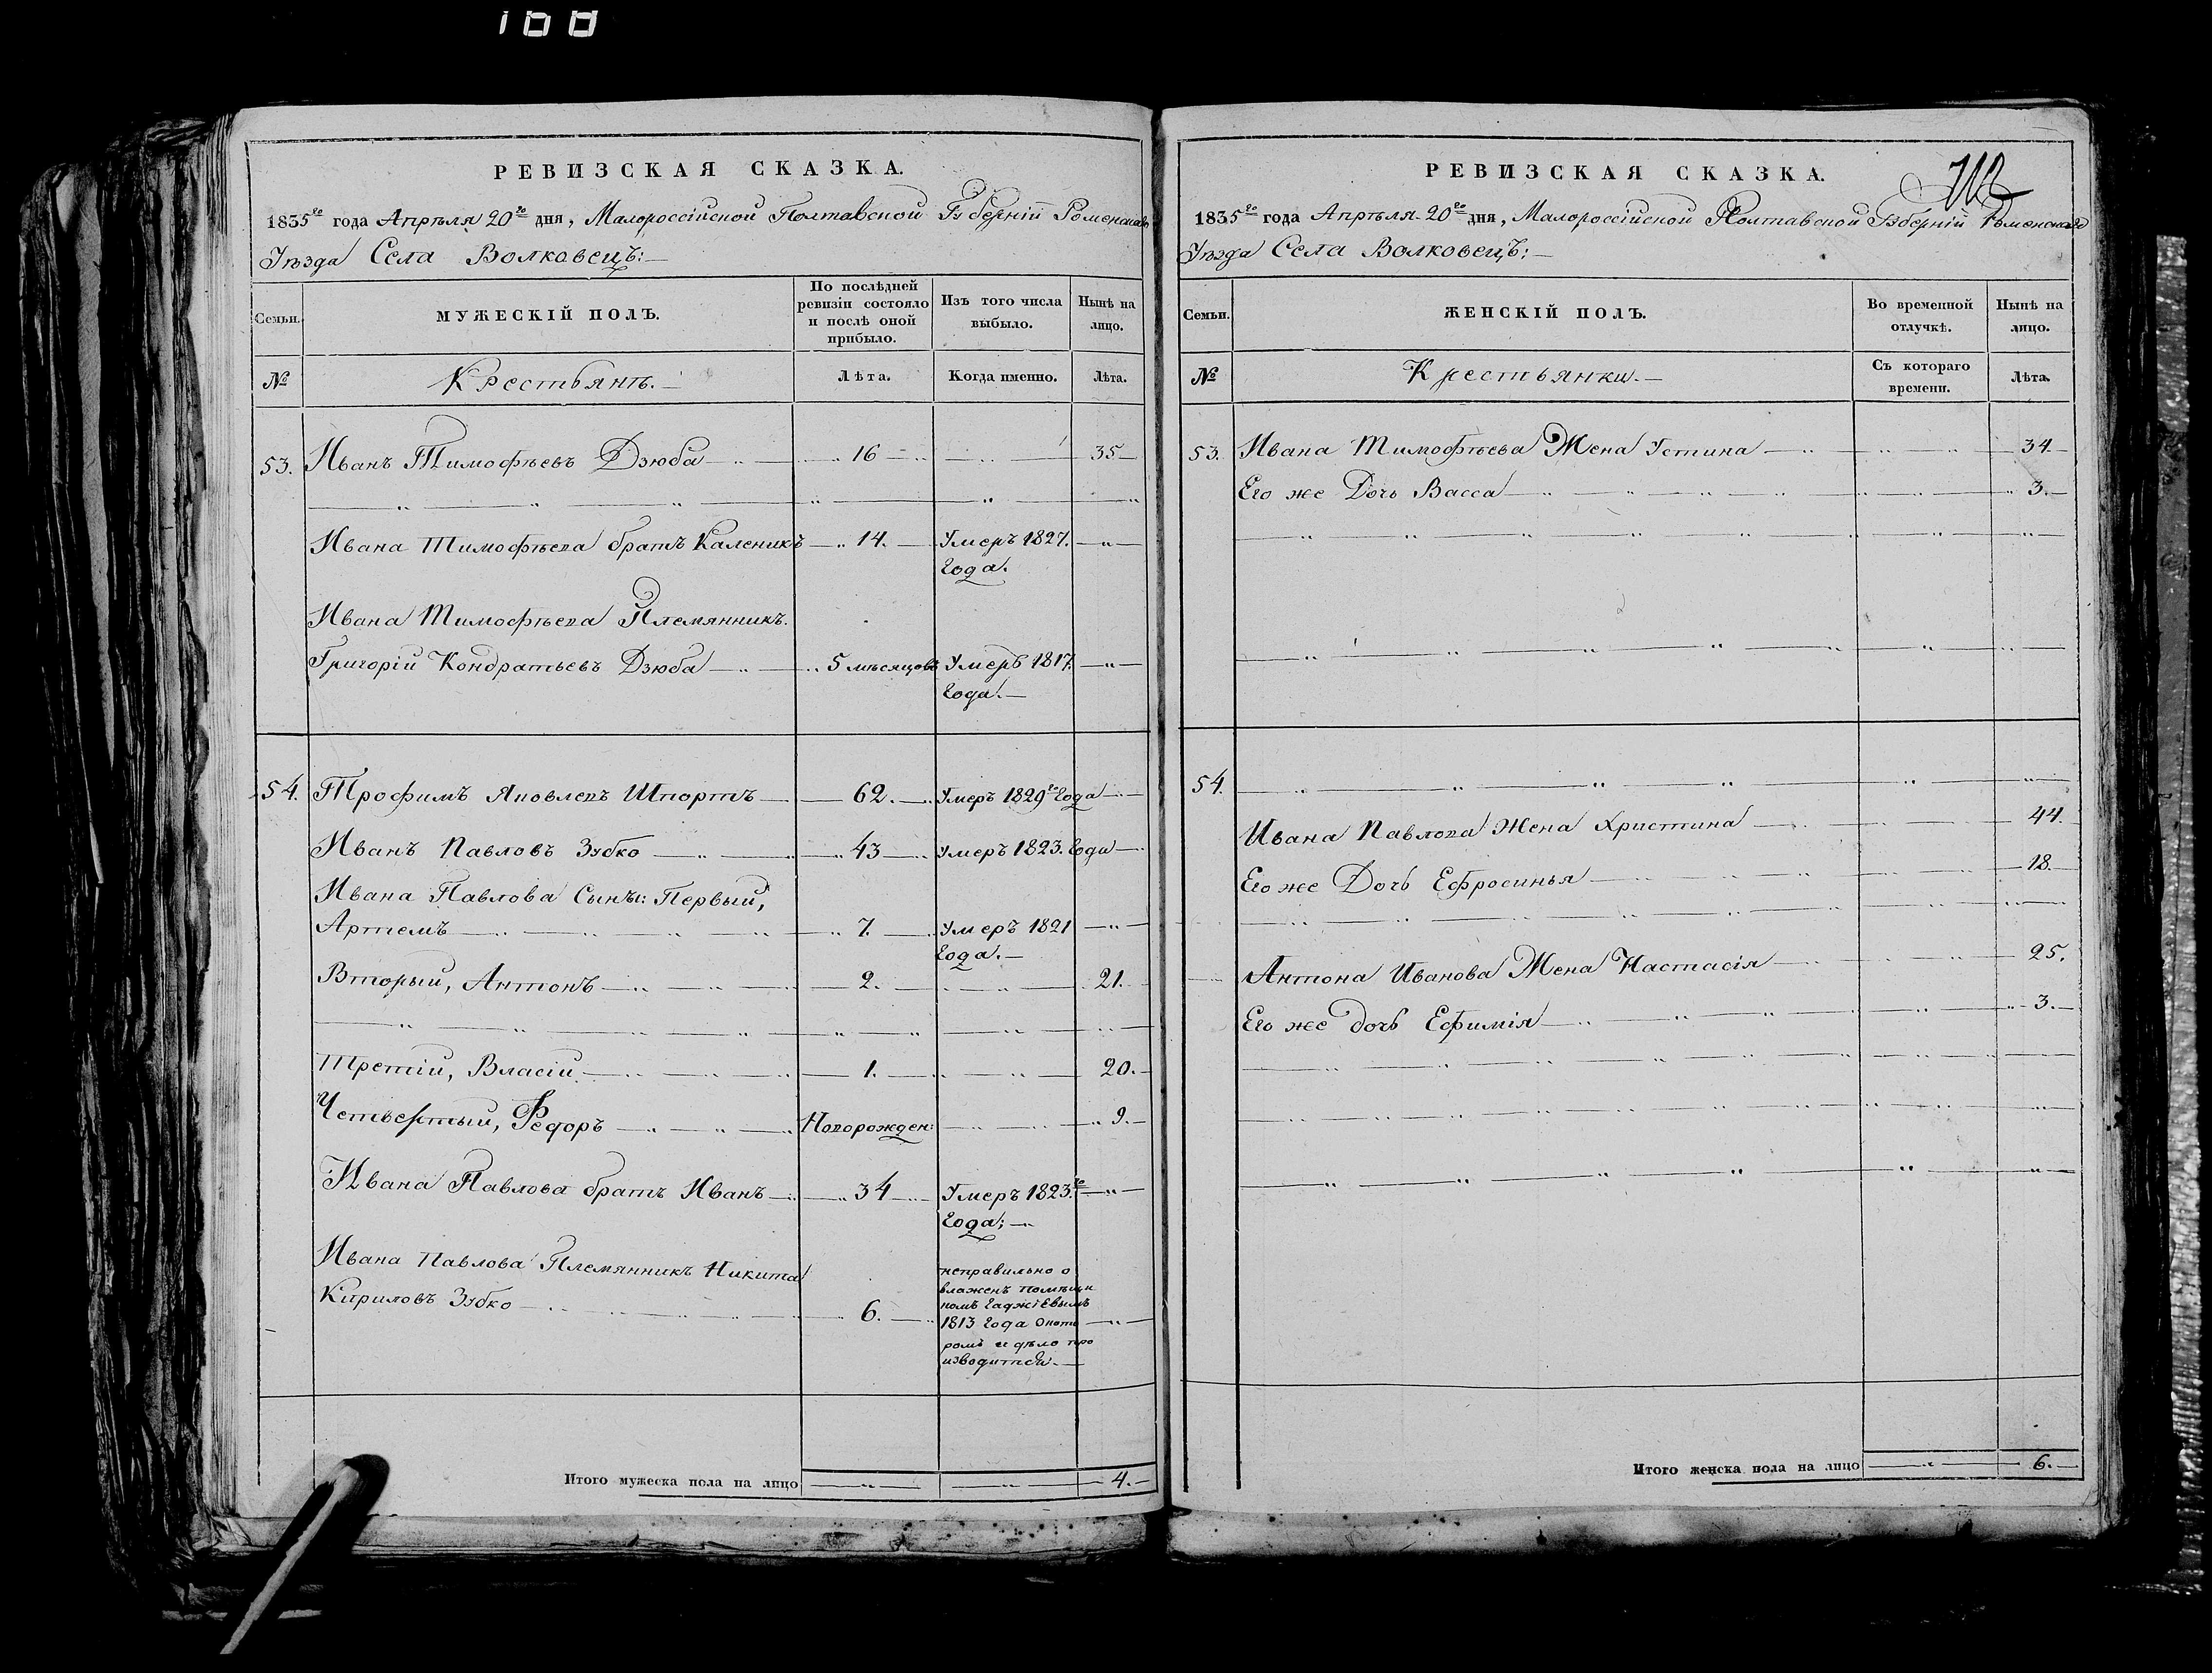 100
РЕВИЗСКАЯ СКАЗКА.
1835го года Апрѣля 20го дня, Малороссійской Полтавской Губерніи Роменскаго
Уѣзда Села Волковецъ:
Семьи.
МУЖЕСКІЙ ПОЛЪ.
По послѣдней ревизіи состояло и послѣ оной прибыло.
Изъ того числа выбыло.
Нынѣ на лицо.
№
Крестьянъ.
Лѣта.
Когда именно.
Лѣта.
53. Иванъ Тимофѣевъ Дзюба 16 35
Ивана Тимофѣева братъ Каленикъ 14. Умеръ 1827.
Года.
Ивана Тимофѣева Племянникъ.
Григорій Кондратьевъ Дзюба 5 мѣсяцовъ Умеръ 1817.
Года.
54. Трофимъ Яковлевъ Шпортъ 62. Умеръ 1829го Года
Иванъ Павловъ Зубко 43 Умеръ 1823. Года
Ивана Павлова Сынъ: Первый,
Артемъ 7. Умеръ 1821
Года.
Вторый, Антонъ 2. 21.
Третій, Власій 1. 20.
Четвертый, Федоръ Новорожден: 9.
Ивана Павлова братъ Иванъ 34 Умеръ 1823.го
Года;
Ивана Павлова Племянникъ Никита
Кириловъ Зубко 6.
неправильно о
влаженъ помѣщи
комъ
1813 Года
ромъ и дѣло про
изводится.
Итого мужеска пола на лицо 4.
РЕВИЗСКАЯ СКАЗКА.
1835го года Апрѣля 20го дня, Малороссійской Полтавской Губерніи Роменскаго
Уѣзда Села Волковецъ:
Семьи.
ЖЕНСКІЙ ПОЛЪ.
Во временной отлучкѣ.
Нынѣ на лицо.
№
Крестьянки.
Съ котораго времени.
Лѣта.
53. Ивана Тимофѣева Жена Устина 34.
Его же Дочь Васса 3.
54.
Ивана Павлова Жена Христина 44.
Его же Дочь Ефросинья 18.
Антона Иванова Жена Настасія 25.
Его же дочь Ефимія 3.
Итого женска пола на лицо 6.